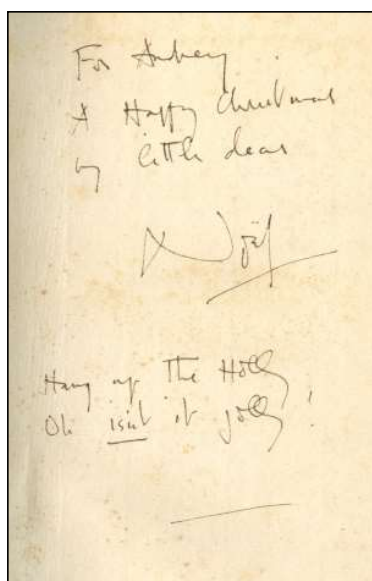 For Aubrey
A Happy Christmas
my little dear
Noël
Hang up the Holly
Oh isn't it jolly!